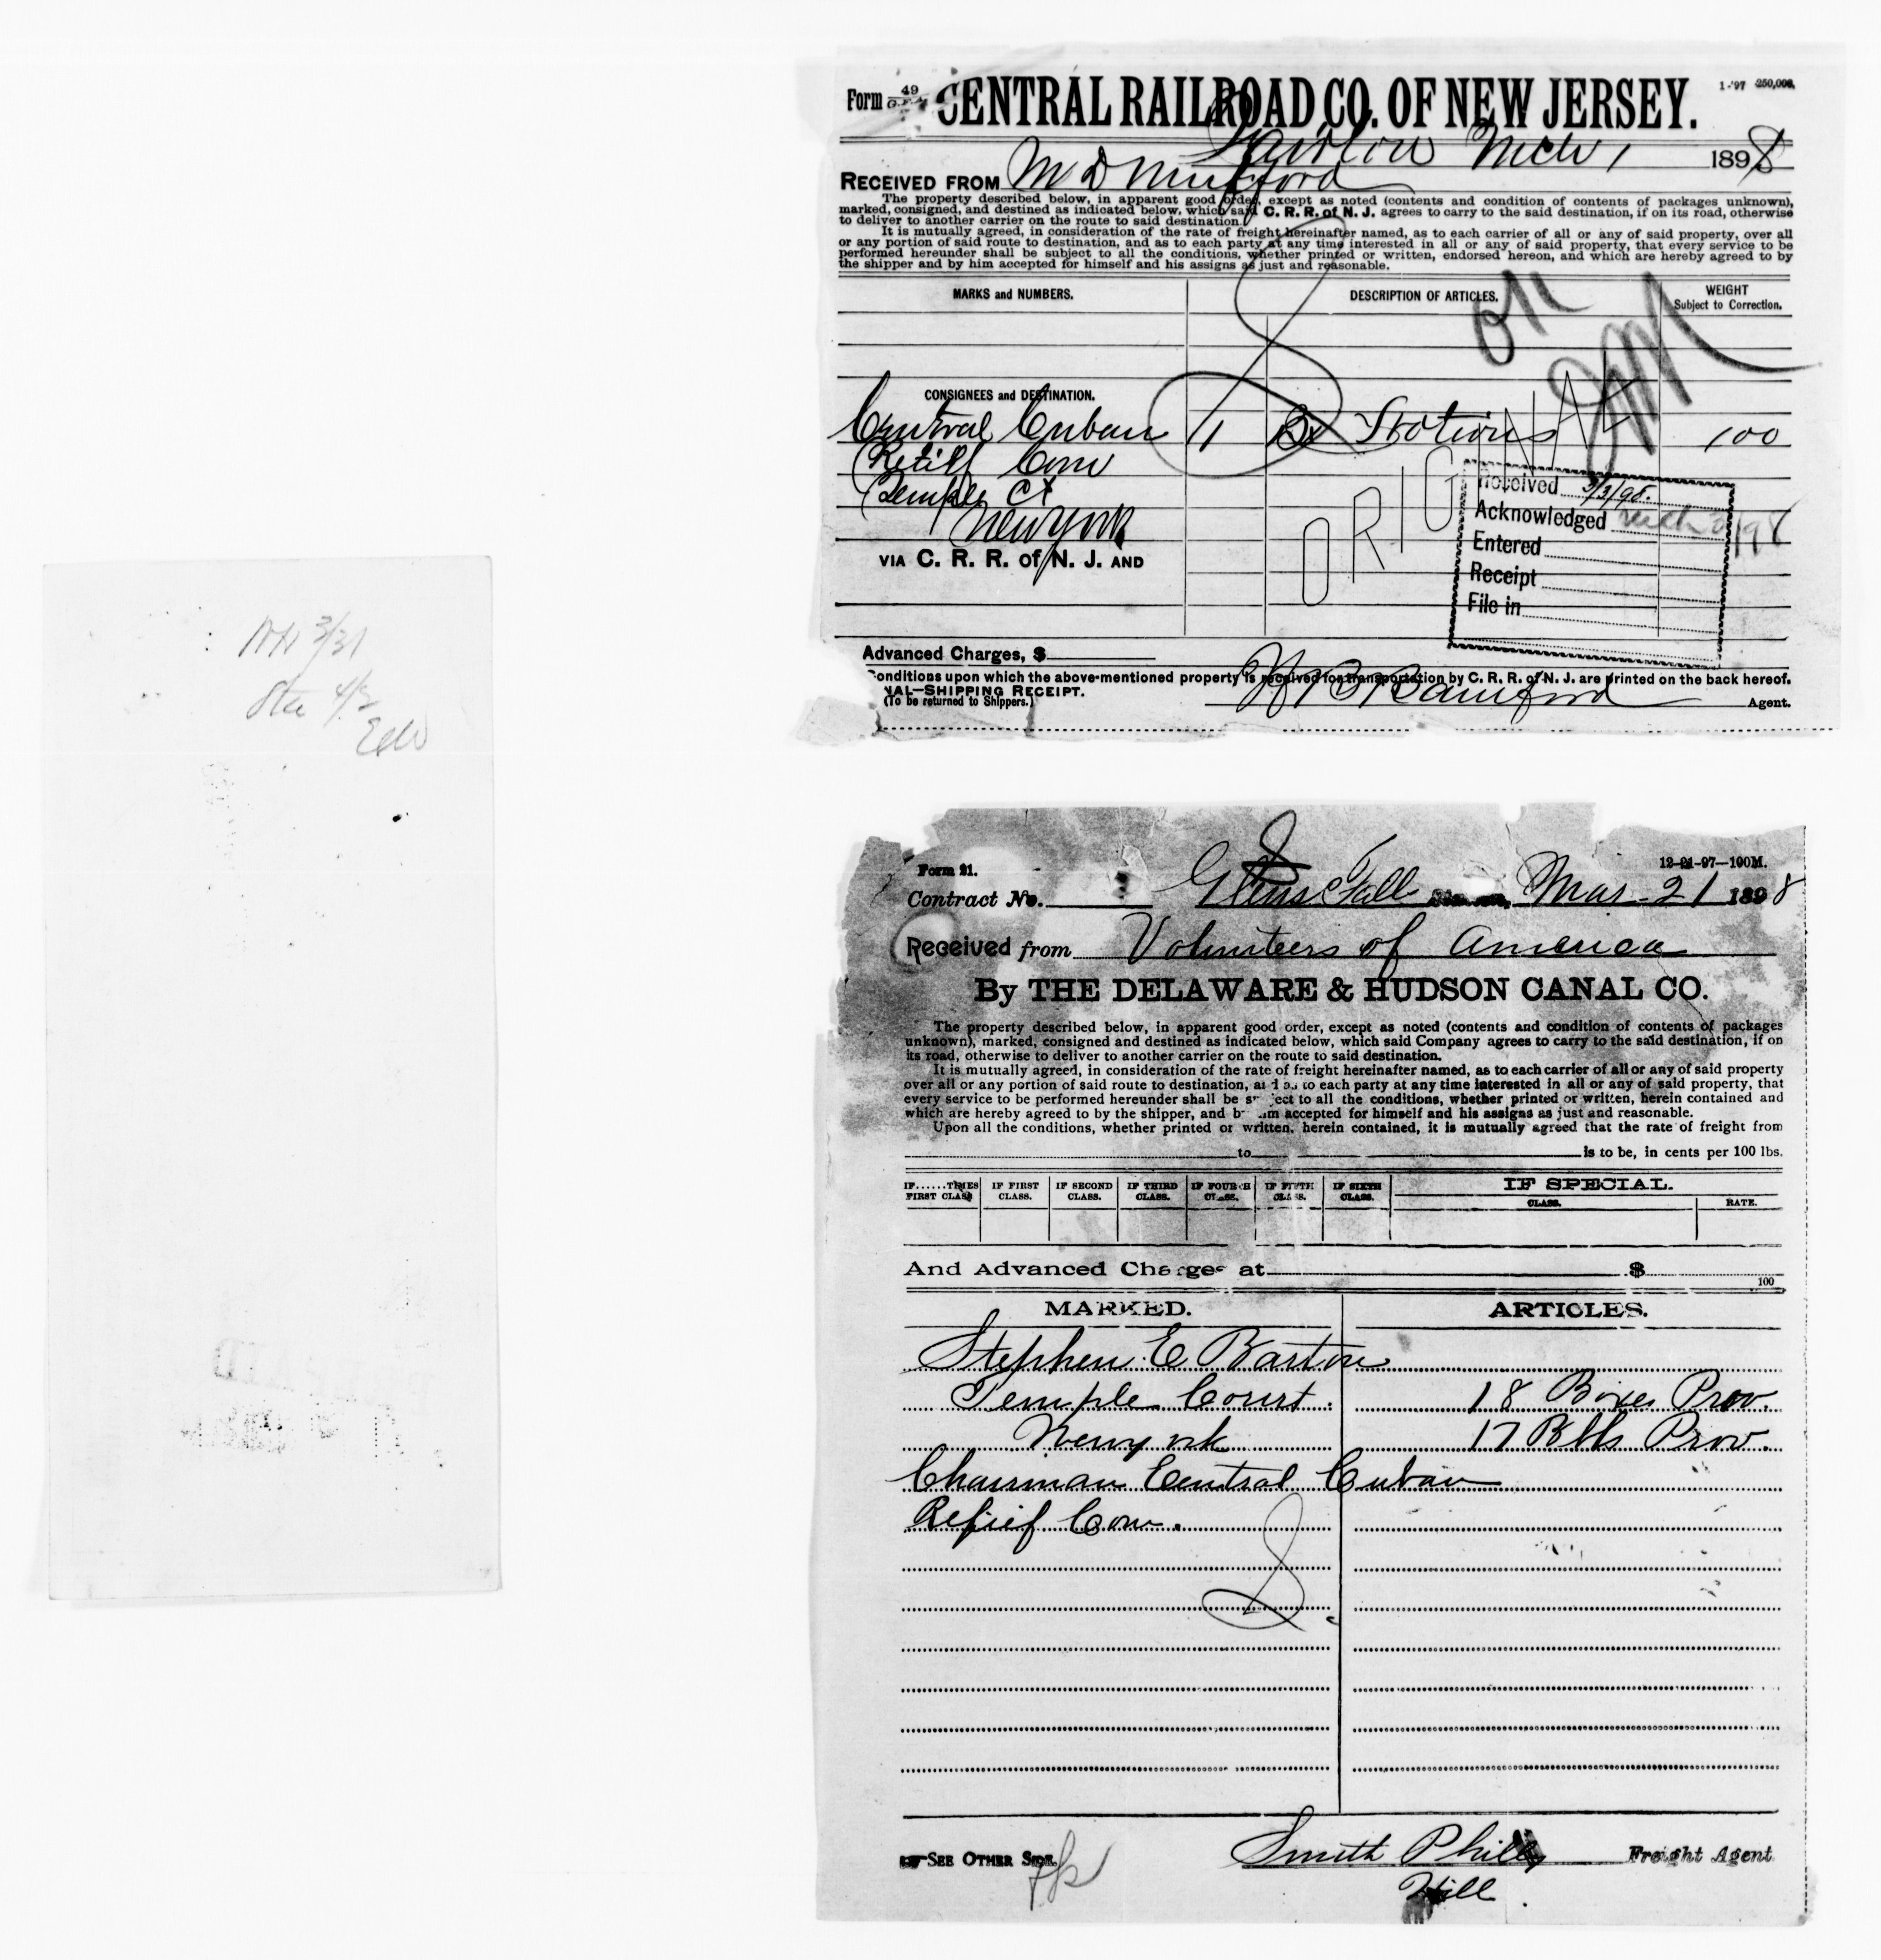 3/31
4/2
Form 49
CENTRAL RAILROAD CO. OF NEW JERSEY.
1-'97 250,000.
Mch 1 1898
RECEIVED FROM M D Mulford
The property described below, in apparent good order, except as noted (contents and condition of contents of packages unknown),
marked, consigned, and destined as indicated below, which said C. R. R. of N. J. agrees to carry to the said destination, if on its road, otherwise
to deliver to another carrier on the route to said destination.
It is mutually agreed, in consideration of the rate of freight hereinafter named, as to each carrier of all or any of said property, over all
or any portion of said route to destination, and as to each party at any time interested in all or any of said property, that every service to be
performed hereunder shall be subject to all the conditions, whether printed or written, endorsed hereon, and which are hereby agreed to by
the shipper and by him accepted for himself and his assigns as just and reasonable.
MARKS and NUMBERS. DESCRIPTION OF ARTICLES. WEIGHT
Subject to Correction.
CONSIGNEES and DESTINATION.
Central Cuban 1 Bx Notions 100
Relief Com
Temple Ct
New York
VIA C. R. R. of N. J. AND
ORIGINAL
Received 3/3/98.
Acknowledged Mch 3/98
Entered
Receipt
File in
Advanced Charges, $
Conditions upon which the above-mentioned property is received for transportation by C. R. R. of N. J. are printed on the back hereof.
NAL—SHIPPING RECEIPT.
(To be returned to Shippers.)
Agent.
Form 21.
12-21-97—100M.
Contract No. Glens Fall Mar 21 1898
Received from Volunteers of America
By THE DELAWARE & HUDSON CANAL CO.
The property described below, in apparent good order, except as noted (contents and condition of contents of packages
unknown), marked, consigned and destined as indicated below, which said Company agrees to carry to the said destination, if on
its road, otherwise to deliver to another carrier on the route to said destination.
It is mutually agreed, in consideration of the rate of freight hereinafter named, as to each carrier of all or any of said property
over all or any portion of said route to destination, and as to each party at any time interested in all or any of said property, that
every service to be performed hereunder shall be subject to all the conditions, whether printed or written, herein contained and
which are hereby agreed to by the shipper, and by him accepted for himself and his assigns as just and reasonable.
Upon all the conditions, whether printed or written, herein contained, it is mutually agreed that the rate of freight from
to is to be, in cents per 100 lbs.
IF......TIMES FIRST CLASS IF FIRST CLASS. IF SECOND CLASS. IF THIRD CLASS. IF FOURTH CLASS. IF FIFTH CLASS. IF SIXTH CLASS. IF SPECIAL.
CLASS. RATE.
And Advanced Charges at $ 100
MARKED. ARTICLES.
Stephen E Barton
Temple Court. 18 Boxes Prov.
New york 17 Bbls Prov.
Chairman Central Cuban
Relief Com.
SEE OTHER SIDE. Smith Phills Freight Agent
Hill